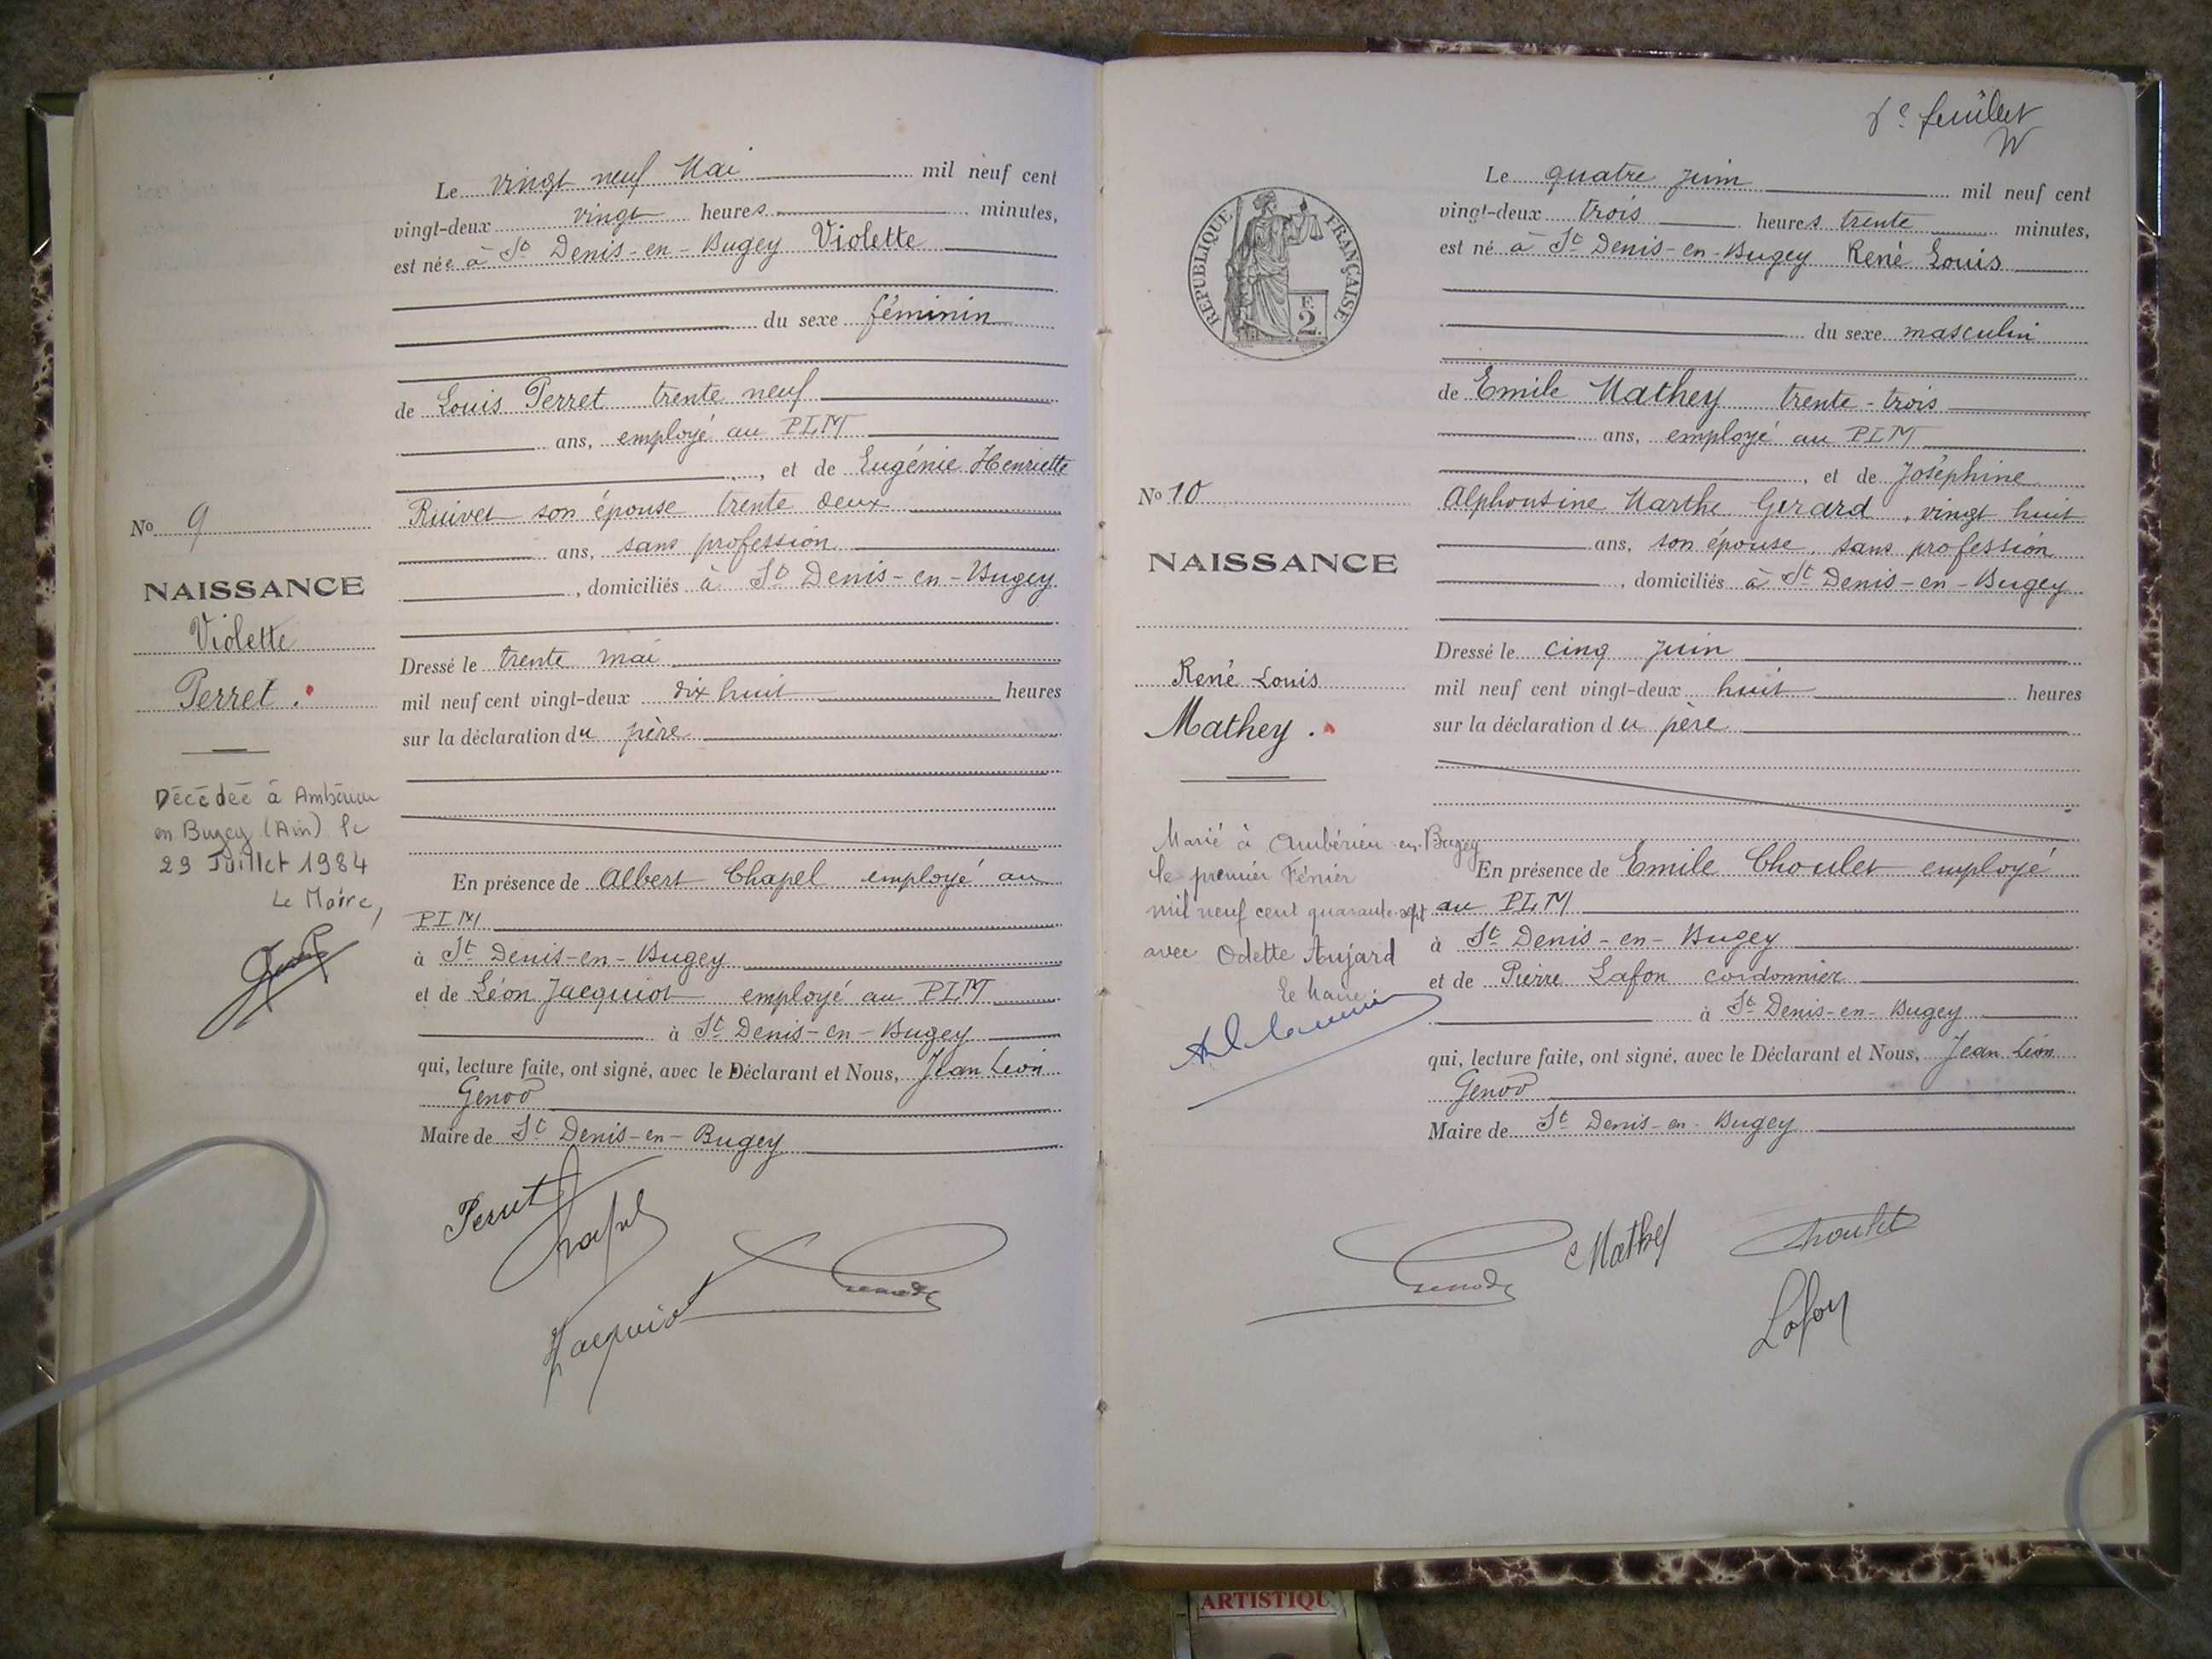 Le vingt neuf Mai mil neuf cent
vingt-deux vingt heures minutes,
est née à St Denis-en-Bugey Violette
du sexe féminin
de Louis Perret trente neuf
ans, employé au PLM
, et de Eugénie Henriette
Ruivet son épouse trente deux
ans, sans profession
, domiciliés à St Denis-en-Bugey
Dressé le trente mai
mil neuf cent vingt-deux dix huit heures
sur la déclaration du père
En présence de Albert Chapel employé au
PLM
à St Denis-en-Bugey
et de Léon Jacquiot employé au PLM
à St Denis-en-Bugey
qui, lecture faite, ont signé, avec le Déclarant et Nous, Jean Léon
Genod
Maire de St Denis-en-Bugey
Perret
Chapel
Jacquiot
Genod
No 9
NAISSANCE
Violette
Perret.
Décédée à Ambérieu
en Bugey (Ain) le
29 Juillet 1984
Le Maire,
feuillet
REPUBLIQUE FRANÇAISE
2
Le quatre juin mil neuf cent
vingt-deux trois heures trente minutes,
est né à St Denis-en-Bugey René Louis
du sexe masculin
de Emile Mathey trente-trois
ans, employé au PLM
, et de Joséphine
Alphonsine Marthe Girard, vingt huit
ans, son épouse, sans profession
, domiciliés à St Denis-en-Bugey
Dressé le cinq juin
mil neuf cent vingt-deux huit heures
sur la déclaration du père
En présence de Emile Choulet employé
au PLM
à St Denis-en-Bugey
et de Pierre Lafon cordonnier
à St Denis-en-Bugey
qui, lecture faite, ont signé, avec le Déclarant et Nous, Jean Léon
Genod
Maire de St Denis-en-Bugey
Genod
Mathey
Choulet
Lafon
No 10
NAISSANCE
René Louis
Mathey.
Marié à Ambérieu-en-Bugey
le premier Février
mil neuf cent quarante-sept
avec Odette Aujard
le Maire
ARTISTIQU